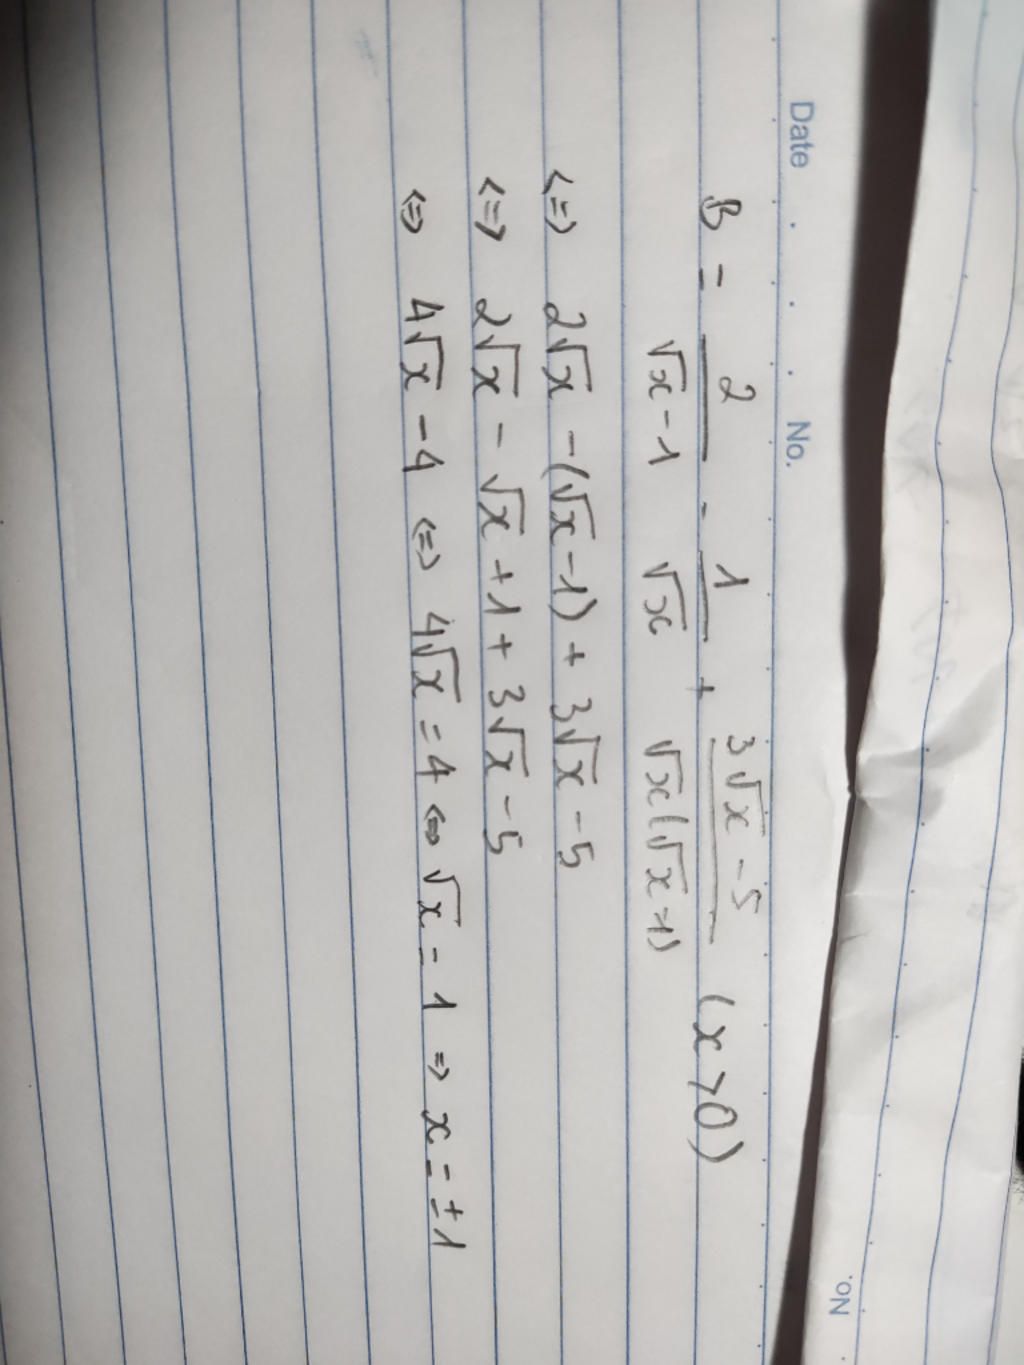 Date No.
B = 2/(√x - 1) - 1/√x + (3√x - 5)/(√x(√x - 1)) (x > 0)
<=> 2√x - (√x - 1) + 3√x - 5
<=> 2√x - √x + 1 + 3√x - 5
<=> 4√x - 4 <=> 4√x = 4 <=> √x = 1 => x = ±1
No.